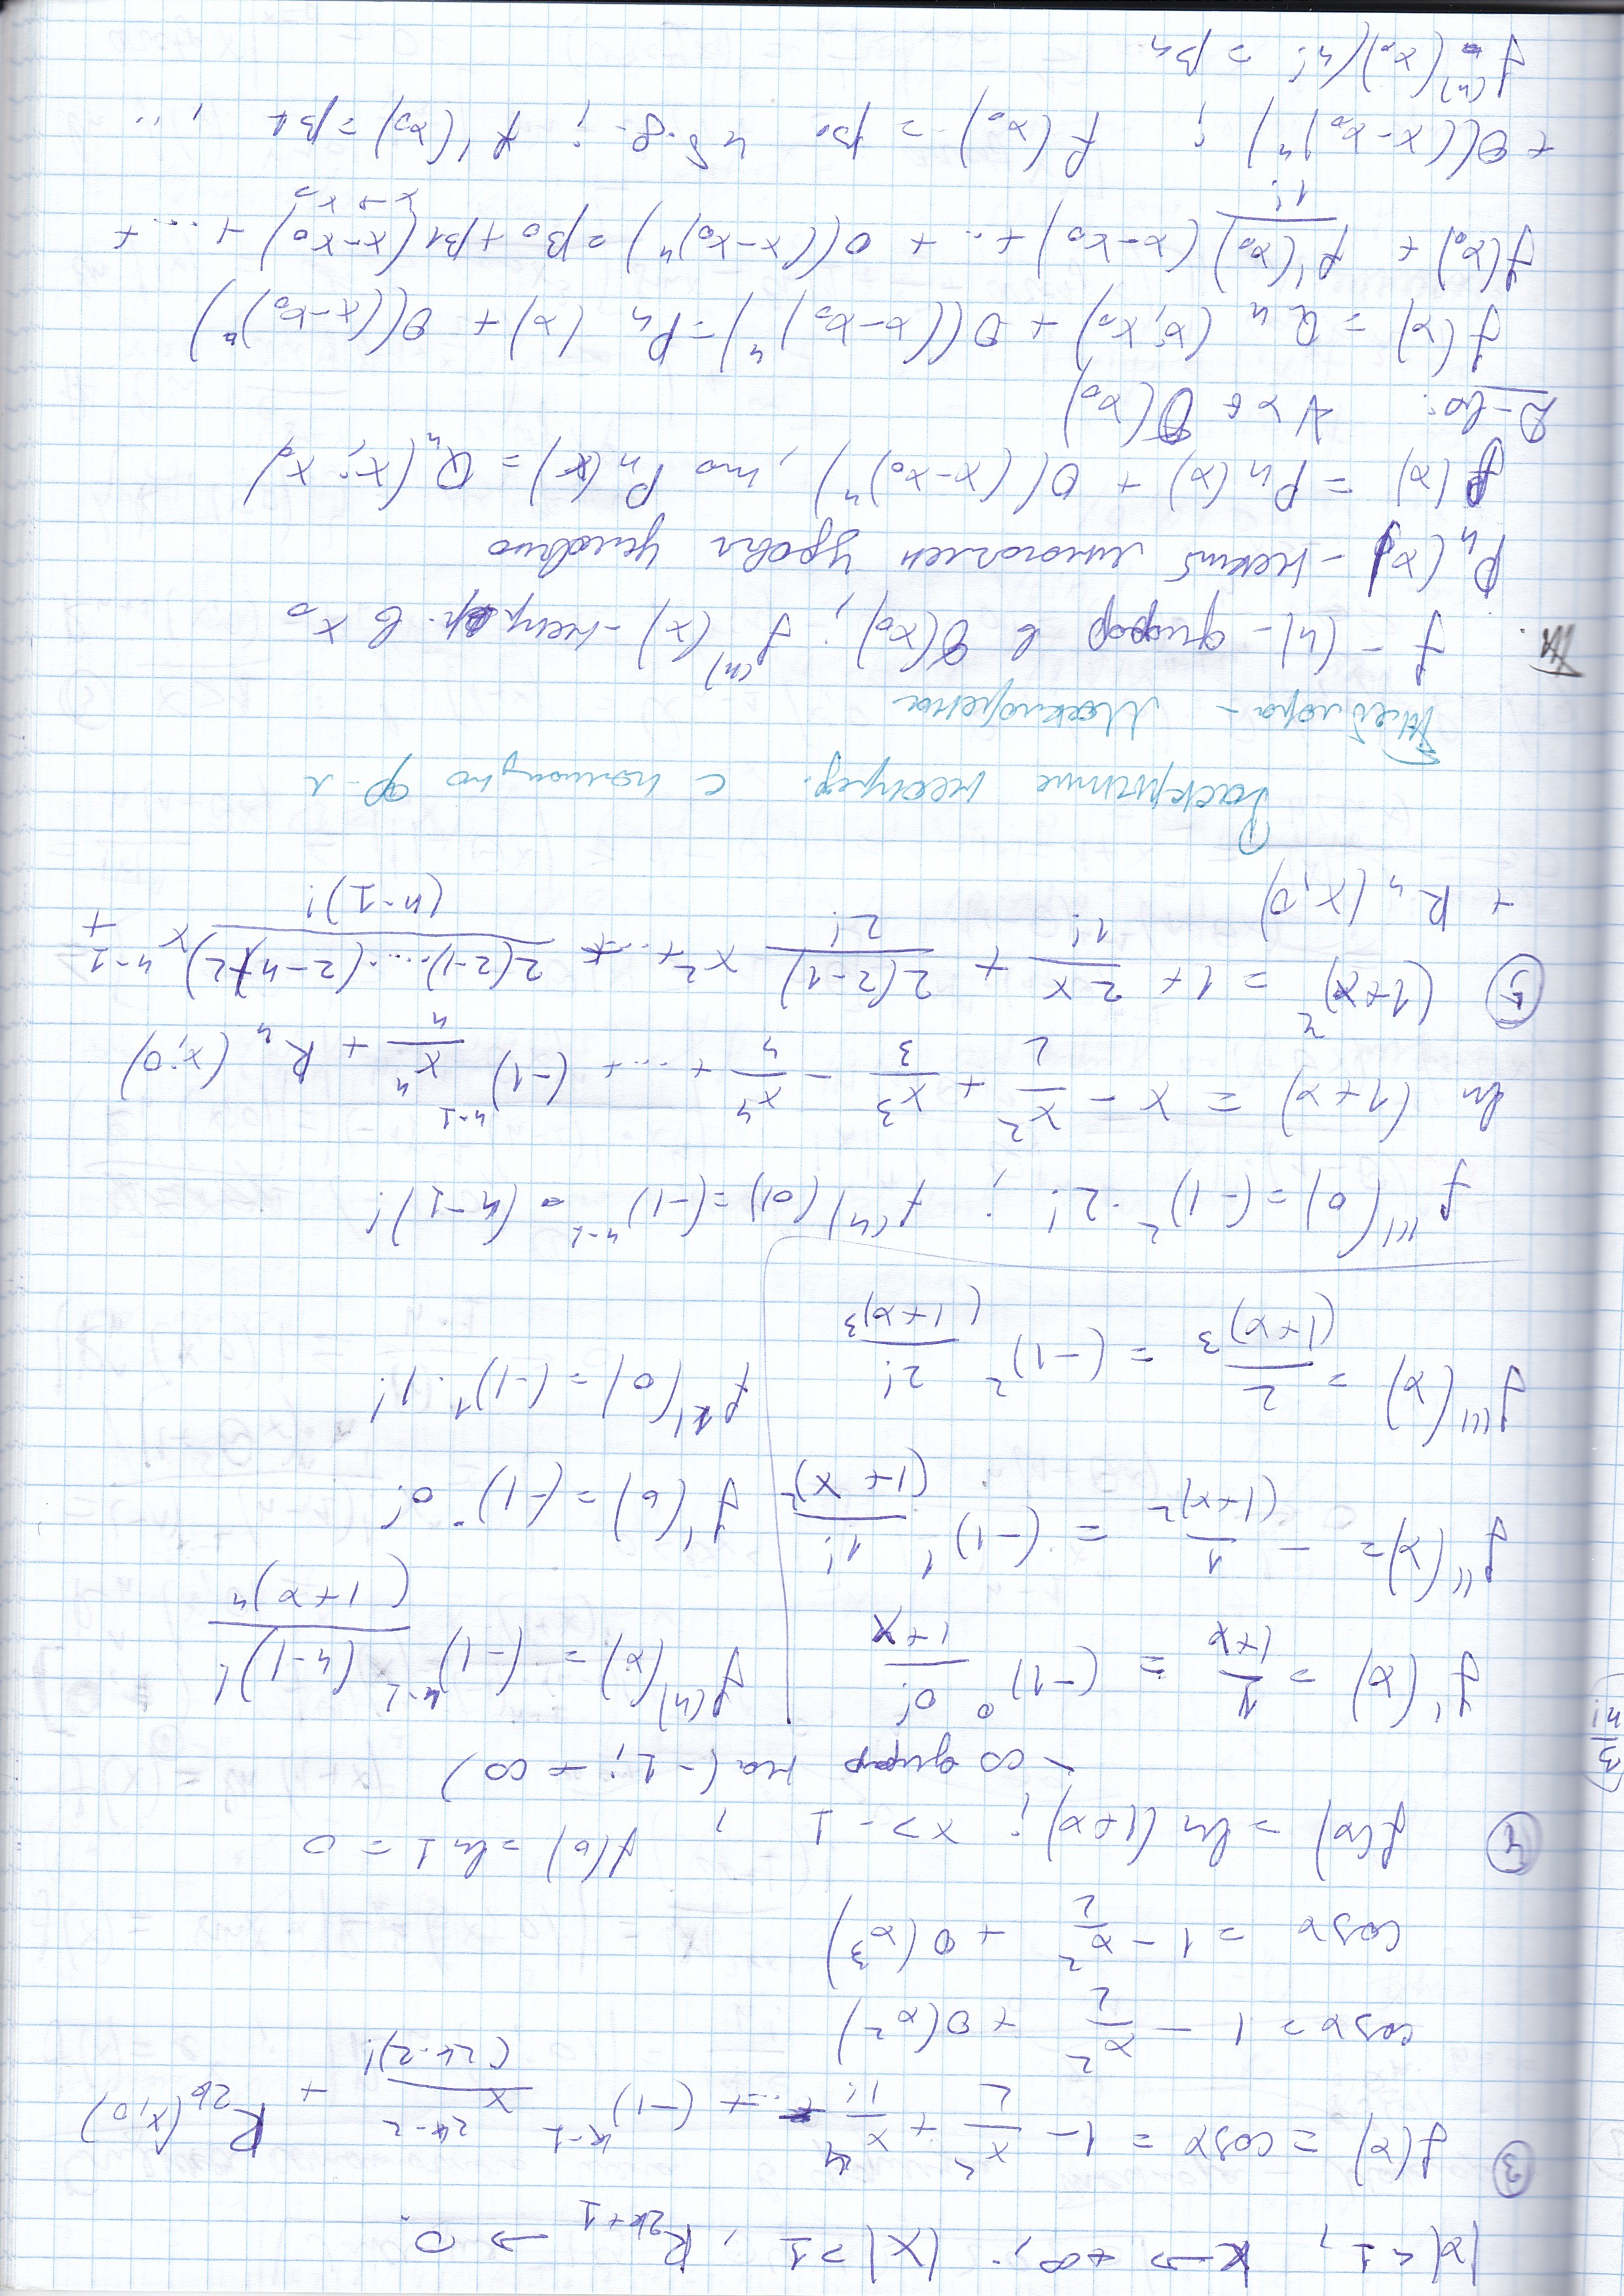 |x| < 1, k → +∞; |x| > 1, R_{2k+1} → 0.
③ f(x) = cos x = 1 - x²/2 + x⁴/4! + ... + (-1)^{k-1} x^{2k-2}/(2k-2)! + R_{2k}(x,0)
cos x = 1 - x²/2 + o(x²)
cos x = 1 - x²/2 + o(x³)
④ f(x) = ln(1+x); x > -1, f(0) = ln 1 = 0
- ∞ дифф на (-1; +∞)
f'(x) = 1/(1+x) = (-1)⁰ 0!/(1+x) f^{(n)}(x) = (-1)^{n-1} (n-1)!/(1+x)^n
f''(x) = - 1/(1+x)² = (-1)¹ 1!/(1+x)² f'(0) = (-1)⁰ 0!
f'''(x) = 2/(1+x)³ = (-1)² 2!/(1+x)³ f''(0) = (-1)¹ · 1!
f'''(0) = (-1)² · 2! ; f^{(n)}(0) = (-1)^{n-1} · (n-1)!
ln (1+x) = x - x²/2 + x³/3 - x⁴/4 + ... + (-1)^{n-1} x^n/n + R_n (x;0)
⑤ (1+x)^2 = 1 + 2x/1! + 2(2-1)/2! x² + ... + 2(2-1)·...·(2-n+2)/(n-1)! x^{n-1} +
+ R_n (x,0)
Раскрытие неопред. с помощью ф-л
Тейлора - Маклорена
Т. f - (n) - дифф в O(x₀); f^{(n)}(x) - непрер. в x₀
P_n(x) - некий многочлен удовл условию
f(x) = P_n(x) + o((x-x₀)^n), то P_n(x) = Q_n(x; x₀)
Д-во: ∀ x ∈ O(x₀)
f(x) = Q_n (x; x₀) + o((x-x₀)^n) = P_n (x) + o((x-x₀)^n)
f(x₀) + f'(x₀)/1! (x-x₀) + .. + o((x-x₀)^n) = β₀ + β1 (x-x₀) + ... +
x → x₀
+ o((x-x₀)^n) ; f(x₀) = β₀ и т.д. ; f'(x₀) = β1 , ..
f^{(n)}(x₀)/n! = β_n